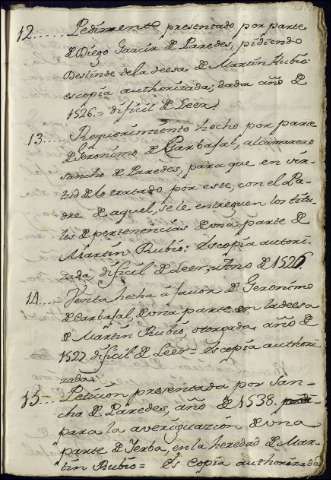 12..... Pedimento presentado por parte
de Diego Garcia de Paredes, pidiendo
Deslinde de la deesa de Martin Rubio
es copia authorizada, dada año de
1526.= dificil de Leer.)
13.... Requerimiento hecho por parte
de Geronimo de Carbajal, al camarero
Sancho de Paredes, para que en vir-
tud de lo tratado por este, con el Pa-
dre de aquel, se le entreguen los titu-
los de pertenencias de una parte de
Martin Rubio: es copia autori-
zada dificil de Leer, año de 1526
14.... Venta hecha á favor de Geronimo
de Carbajal, de una parte en la deesa
de Martin Rubio, otorgada año de
1527 dificil de Leer = es copia authori
zada.
15... Peticion presentada por San-
cho de Paredes, año de 1538.
para la averiguazion de una
parte de Yerba, en la heredad de Mar-
tin Rubio = Es copia authorizada